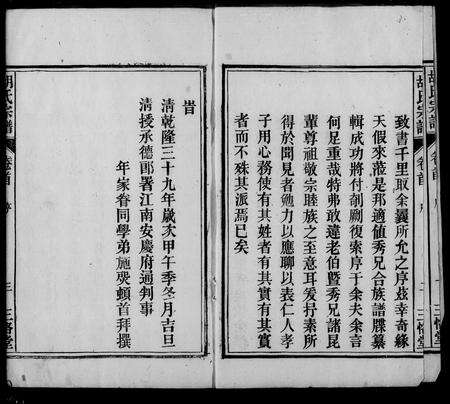 胡氏宗譜
卷首
序
三悟堂
致書千里取余曩所允之序茲幸奇緣
天假來蒞是邦適値秀兄合族譜牒纂
輯成功將付剞劂復索序于余夫余言
何足重哉特弗敢違老伯暨秀兄諸昆
輩尊祖敬宗睦族之至意耳爰抒素所
得於聞見者勉力以應聊以表仁人孝
子用心務使有其姓者有其實有其實
者而不殊其派焉已矣
旹
淸乾隆三十九年歲次甲午季冬月吉旦
淸授承德郎署江南安慶府通判事
年家眷同學弟施燮頓首拜撰
胡氏宗譜
卷首
序
三
三悟堂